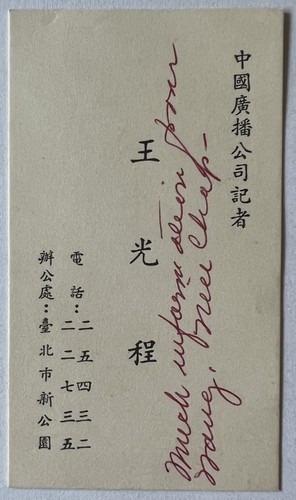 中國廣播公司記者
王光程
電話：二五四三二
二二七三五
辦公處：臺北市新公園
Much information from
Wang. Nice Chap-